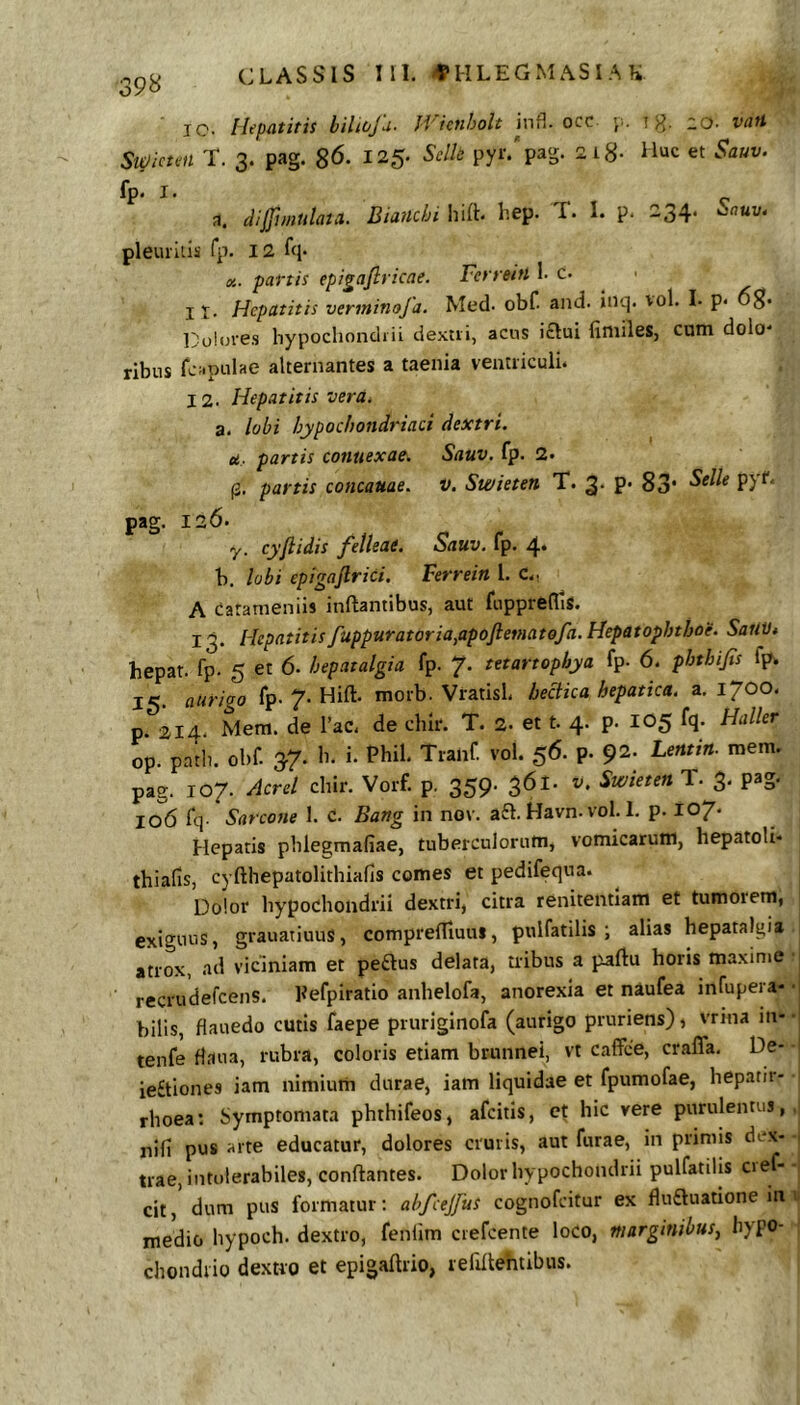 398 CLASSIS III. PHLEGMASIAE.
10. Hepatitis biliosa. Wienholt infl. occ. p. 18. 20. van
Swieten T. 3. pag. 86. 125. Selle pyr. pag. 218. Huc et Sauv.
ſp. 1.
a. diſſimulata. Bianchi hiſt. hep. T. I. p. 234. Sauv.
pleuritis ſp. 12 ſq.
α. partis epigaſtricae. Ferrein l. c.
11. Hepatitis verminoſa. Med. obſ. and. inq. vol. I. p. 68.
Dolores hypochondrii dextri, acus ictui ſimiles, cum dolo-
ribus ſcapulae alternantes a taenia ventriculi.
12. Hepatitis vera.
a. lobi hypochondriaci dextri.
α. partis conuexae. Sauv. ſp. 2.
β. partis concauae. v. Swieten T. 3. p. 83. Selle pyr.
pag. 126.
γ. cyſtidis felleae. Sauv. ſp. 4.
b. lobi epigaſtrici. Ferrein l. c.
A catameniis inſtantibus, aut ſuppreſſis.
13. Hepatitis ſuppuratoria, apoſtematoſa. Hepatophthoë. Sauv.
hepat. ſp. 5 et 6. hepatalgia ſp. 7. tetartophya ſp. 6. phthiſis ſp.
15. aurigo ſp. 7. Hiſt. morb. Vratisl. hectica hepatica. a. 1700.
p. 214. Mem. de l'ac. de chir. T. 2. et t. 4. p. 105 ſq. Haller
op. path. obſ. 37. h. i. Phil. Tranſ. vol. 56. p. 92. Lentin. mem.
pag. 107. Acrel chir. Vorf. p. 359. 361. v. Swieten T. 3. pag.
106 ſq. Sarcone l. c. Bang in nov. act. Havn. vol. I. p. 107.
Hepatis phlegmaſiae, tuberculorum, vomicarum, hepatoli-
thiaſis, cyſthepatolithiaſis comes et pediſequa.
Dolor hypochondrii dextri, citra renitentiam et tumorem,
exiguus, grauatiuus, compreſſiuus, pulſatilis; alias hepatalgia
atrox, ad viciniam et pectus delata, tribus a paſtu horis maxime
recrudeſcens. Reſpiratio anheloſa, anorexia et nauſea inſupera-
bilis, flauedo cutis ſaepe pruriginoſa (aurigo pruriens), vrina in-
tenſe flaua, rubra, coloris etiam brunnei, vt caffée, craſſa. De-
iectiones iam nimium durae, iam liquidae et ſpumoſae, hepatir-
rhoea: Symptomata phthiſeos, aſcitis, et hic vere purulentus,
niſi pus arte educatur, dolores cruris, aut furae, in primis dex-
trae, intolerabiles, conſtantes. Dolor hypochondrii pulſatilis creſ-
cit, dum pus formatur: abſceſſus cognoſcitur ex fluctuatione in
medio hypoch. dextro, ſenſim creſcente loco, marginibus, hypo-
chondrio dextro et epigaſtrio, reſiſtentibus.